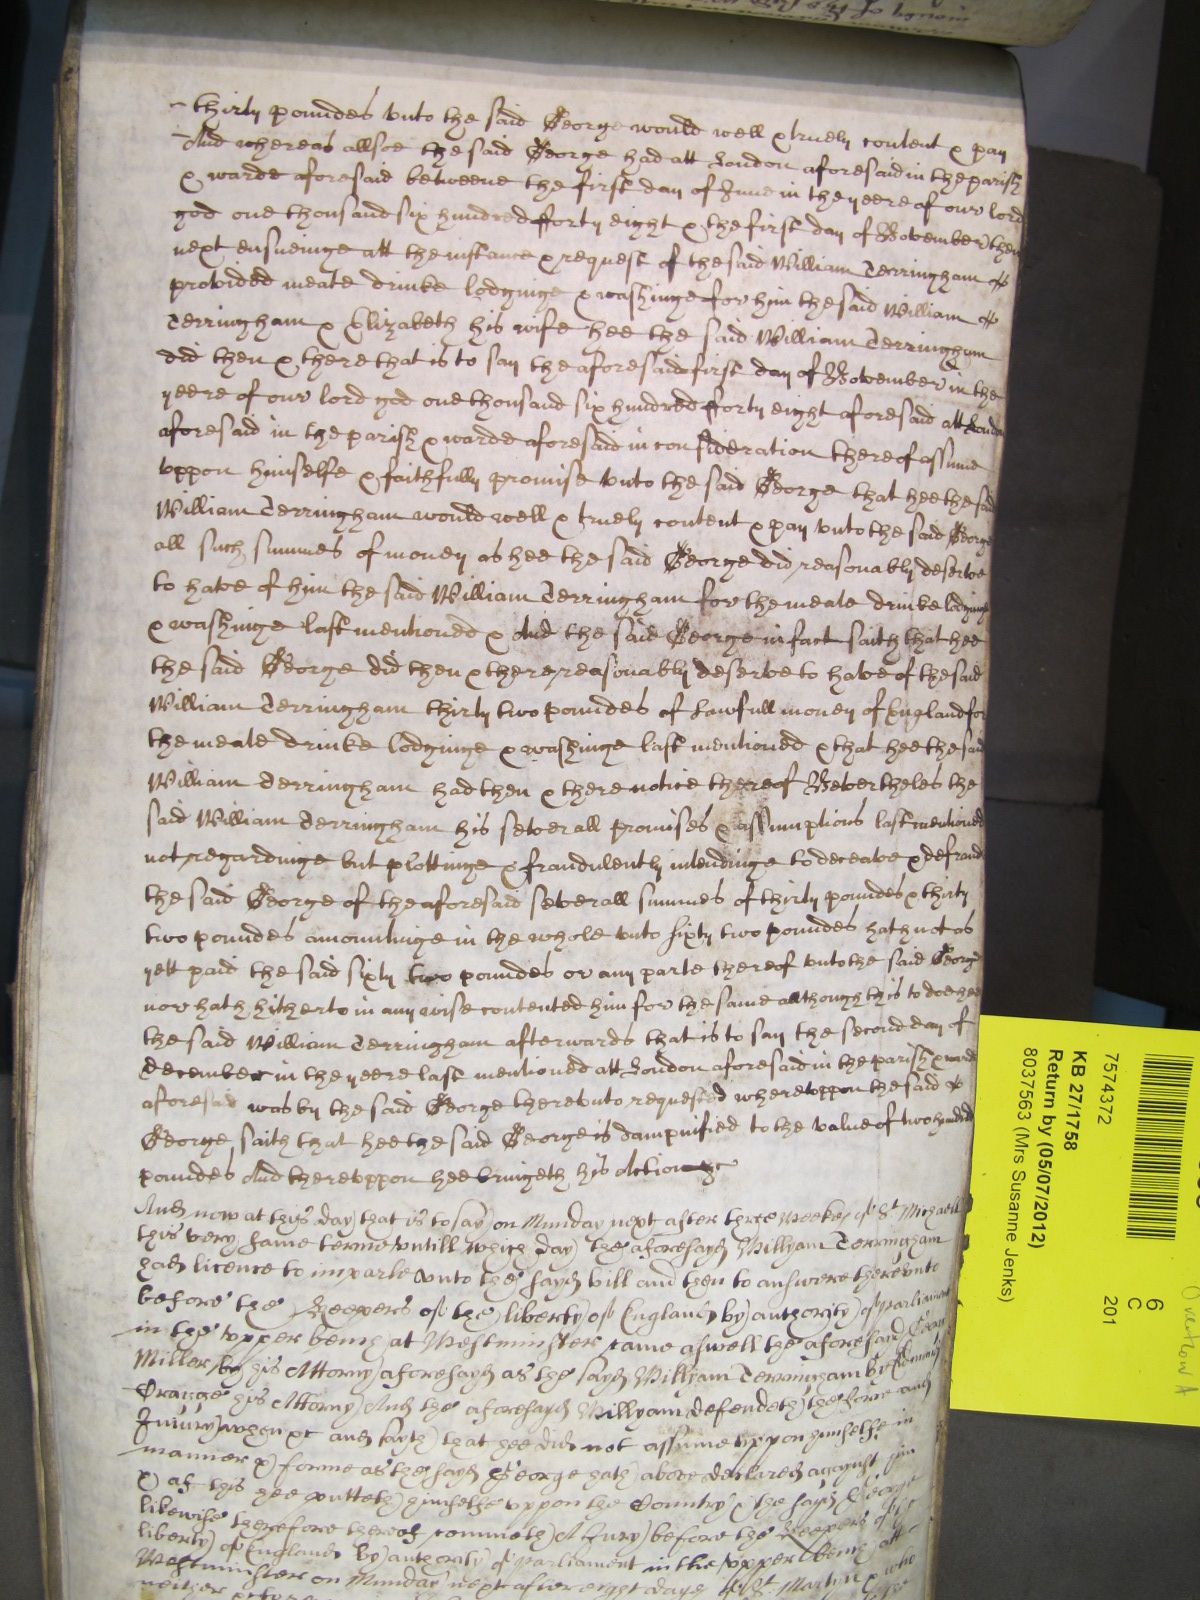 thirty poundes vnto the said George would well & truely content & pay
And whereas allsoe the said George had att London aforesaid in the parish
& warde aforesaid betweene the first day of June in the yeere of our lord
god one thousand six hundred fforty eight & the first day of November then
next ensueinge att the instance & request of the said William Terringham
provided meate drinke lodginge & washinge for him the said William
Terringham & Elizabeth his wife hee the said William Terringham
did then & there that is to say the aforesaid first day of November in the
yeere of our lord god one thousand six hundred fforty eight aforesaid att London
aforesaid in the parish & warde aforesaid in consideration thereof assume
vppon himselfe & faithfully promise vnto the said George that hee the said
William Terringham would well & truely content & pay vnto the said George
all such summes of money as hee the said George did reasonably deserve
to have of him the said William Terringham for the meate drinke lodginge
& washinge last mentioned & And the said George in fact saith that hee
the said George did then & there reasonably deserve to have of the said
William Terringham thirty two poundes of lawfull money of England for
the meate drinke lodginge & washinge last mentioned & that hee the said
William Terringham had then & there notice thereof Nevertheles the
said William Terringham his severall promises & assumptions last mentioned
not regardinge but plottinge & fraudulently intendinge to deceave & defraud
the said George of the aforesaid severall summes of thirty poundes & thirty
two poundes amountinge in the whole vnto sixty two poundes hath not as
yett paid the said sixty two poundes or any parte thereof vnto the said George
nor hath hitherto in any wise contented him for the same allthough this to doe hee
the said William Terringham afterwards that is to say the second day of
December in the yeere last mentioned att London aforesaid in the parish & warde
aforesaid was by the said George therevnto requested wherevppon the said
George saith that hee the said George is dampnified to the value of two hundred
poundes And therevppon hee bringeth his Action &c
And now at this day that is to say on Munday next after three weekes of St Michaell
this very same terme vntill which day the aforesayd Willyam Terringham
had licence to imparle vnto the sayd bill and then to answere therevnto
before the Keepers of the liberty of England by authority of Parliament
in the vpper bench at Westminster came aswell the aforesaid George
Miller by his Attorny aforesayd as the sayd Willyam Terringham by
Orange his Attorny And the aforesayd Willyam defendeth the force and
Iniury when &c and sayth that hee did not assume vppon himselfe in
manner & forme as the sayd George hath above declared against him
& of this hee putteth himselfe vppon the Country & the sayd George
likewise therefore thereof commeth A Jury before the Keepers of the
liberty of England by authority of Parliament in the vpper bench att
Westminster on Munday next after eight dayes of St Martyn & who
neither
7574372
KB 27/1758
Return by (05/07/2012)
8037563 (Mrs Susanne Jenks)
6
C
201
Overflow A